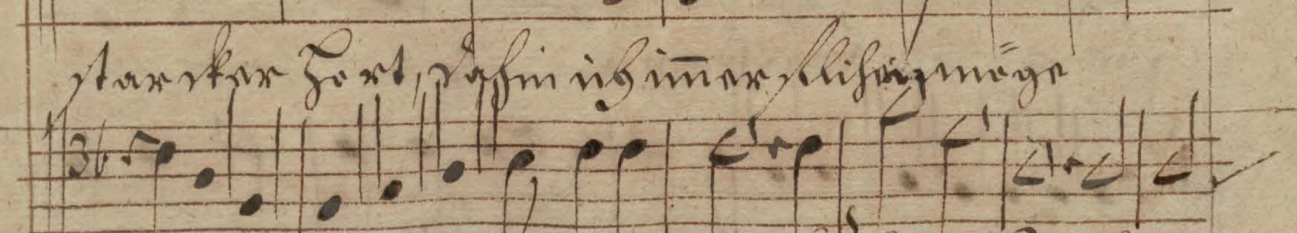 starcker Hort, Dahin ich im̄er fliehen möge